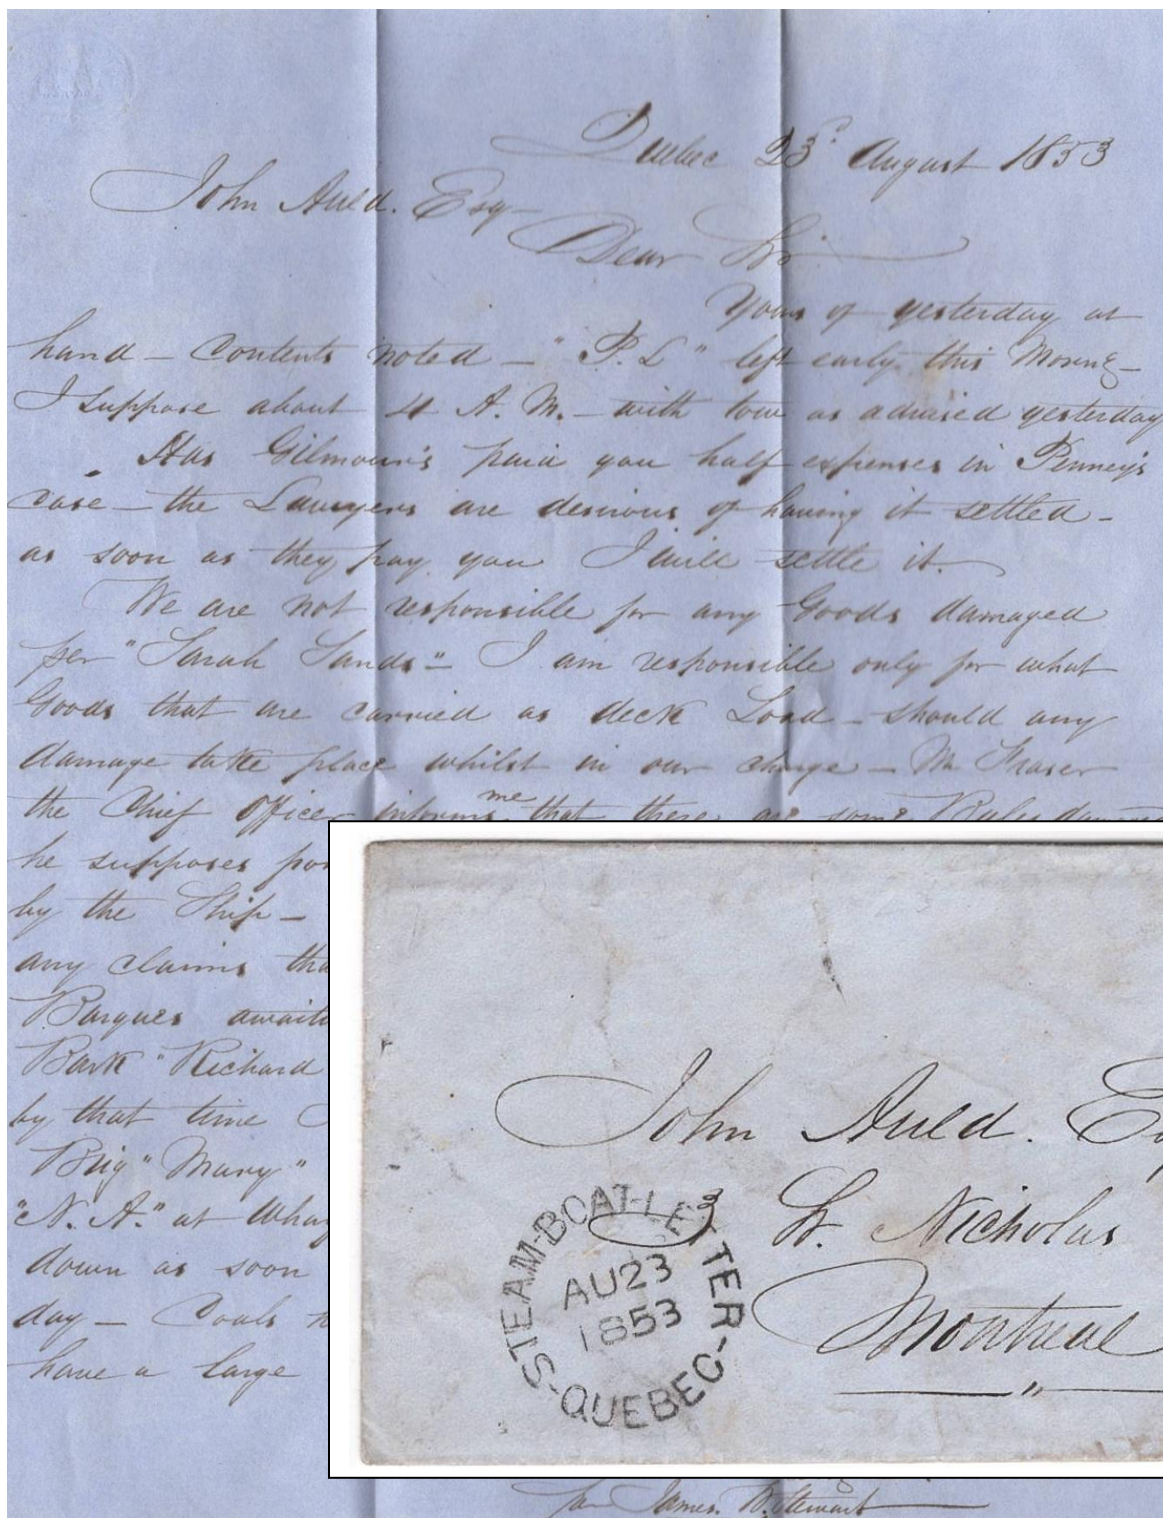 Quebec 23d August 1853
John Auld. Esq
Dear Sir
Yours of yesterday at
hand - Contents noted - "P.L" left early this Morng -
I suppose about 4 A.M. - with tow as advised yesterday
Has Gilmour's paid you half expenses in Penney's
case - the Lawyers are desirous of having it settled -
as soon as they pay you I will settle it.
We are not responsible for any Goods damaged
per "Sarah Sands" - I am responsible only for what
Goods that are carried as deck Load - should any
damage take place whilst in our charge - Mr Fraser
the Chief Officer informs me that there are some Bales
he supposes
by the Ship -
any claims
Barques
Bark "Richard
by that time
Brig "Mary"
"N.A." at
down as soon
day - Coals
have a large
for James B. Stewart
John Auld.
St. Nicholas
Montreal
3
STEAM-BOAT-LETTER-QUEBEC-
AU 23
1853